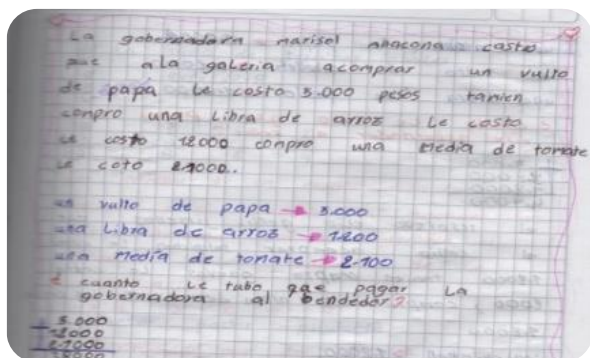 La gobernadora marisol anacona casto
que ala galeria acomprar un vulto
de papa Le costo 3.000 pesos tanien
conpro una Libra de arroz Le costo
Le costo 12000 conpro una media de tomate
Le coto 21000..
un vulto de papa → 3.000
una Libra de arroz → 1.200
una media de tomate → 2.100
¿ cuanto Le tubo que pagar La
gobernadora al bendedor?
3.000